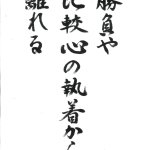 勝負や
比較心の執着から
離れる